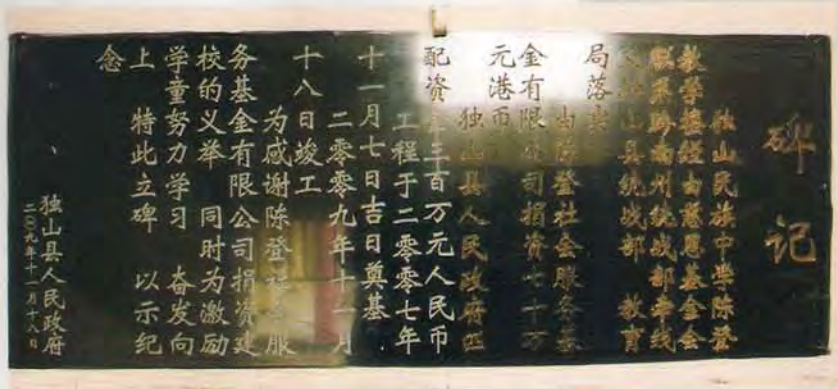 碑记
独山民族中学陈登
教学楼经由慈恩基金会
联系黔南州统战部牵线
独山县统战部 教育
局落实
由陈登社会服务基
金有限公司捐资七十万
元港币
独山县人民政府匹
配资 三百万元人民币
工程于二零零七年
十一月七日吉日奠基
二零零九年十一月
十八日竣工
为感谢陈登社会服
务基金有限公司捐资建
校的义举 同时为激励
学童努力学习 奋发向
上 特此立碑 以示纪
念
独山县人民政府
二〇〇九年十一月十八日